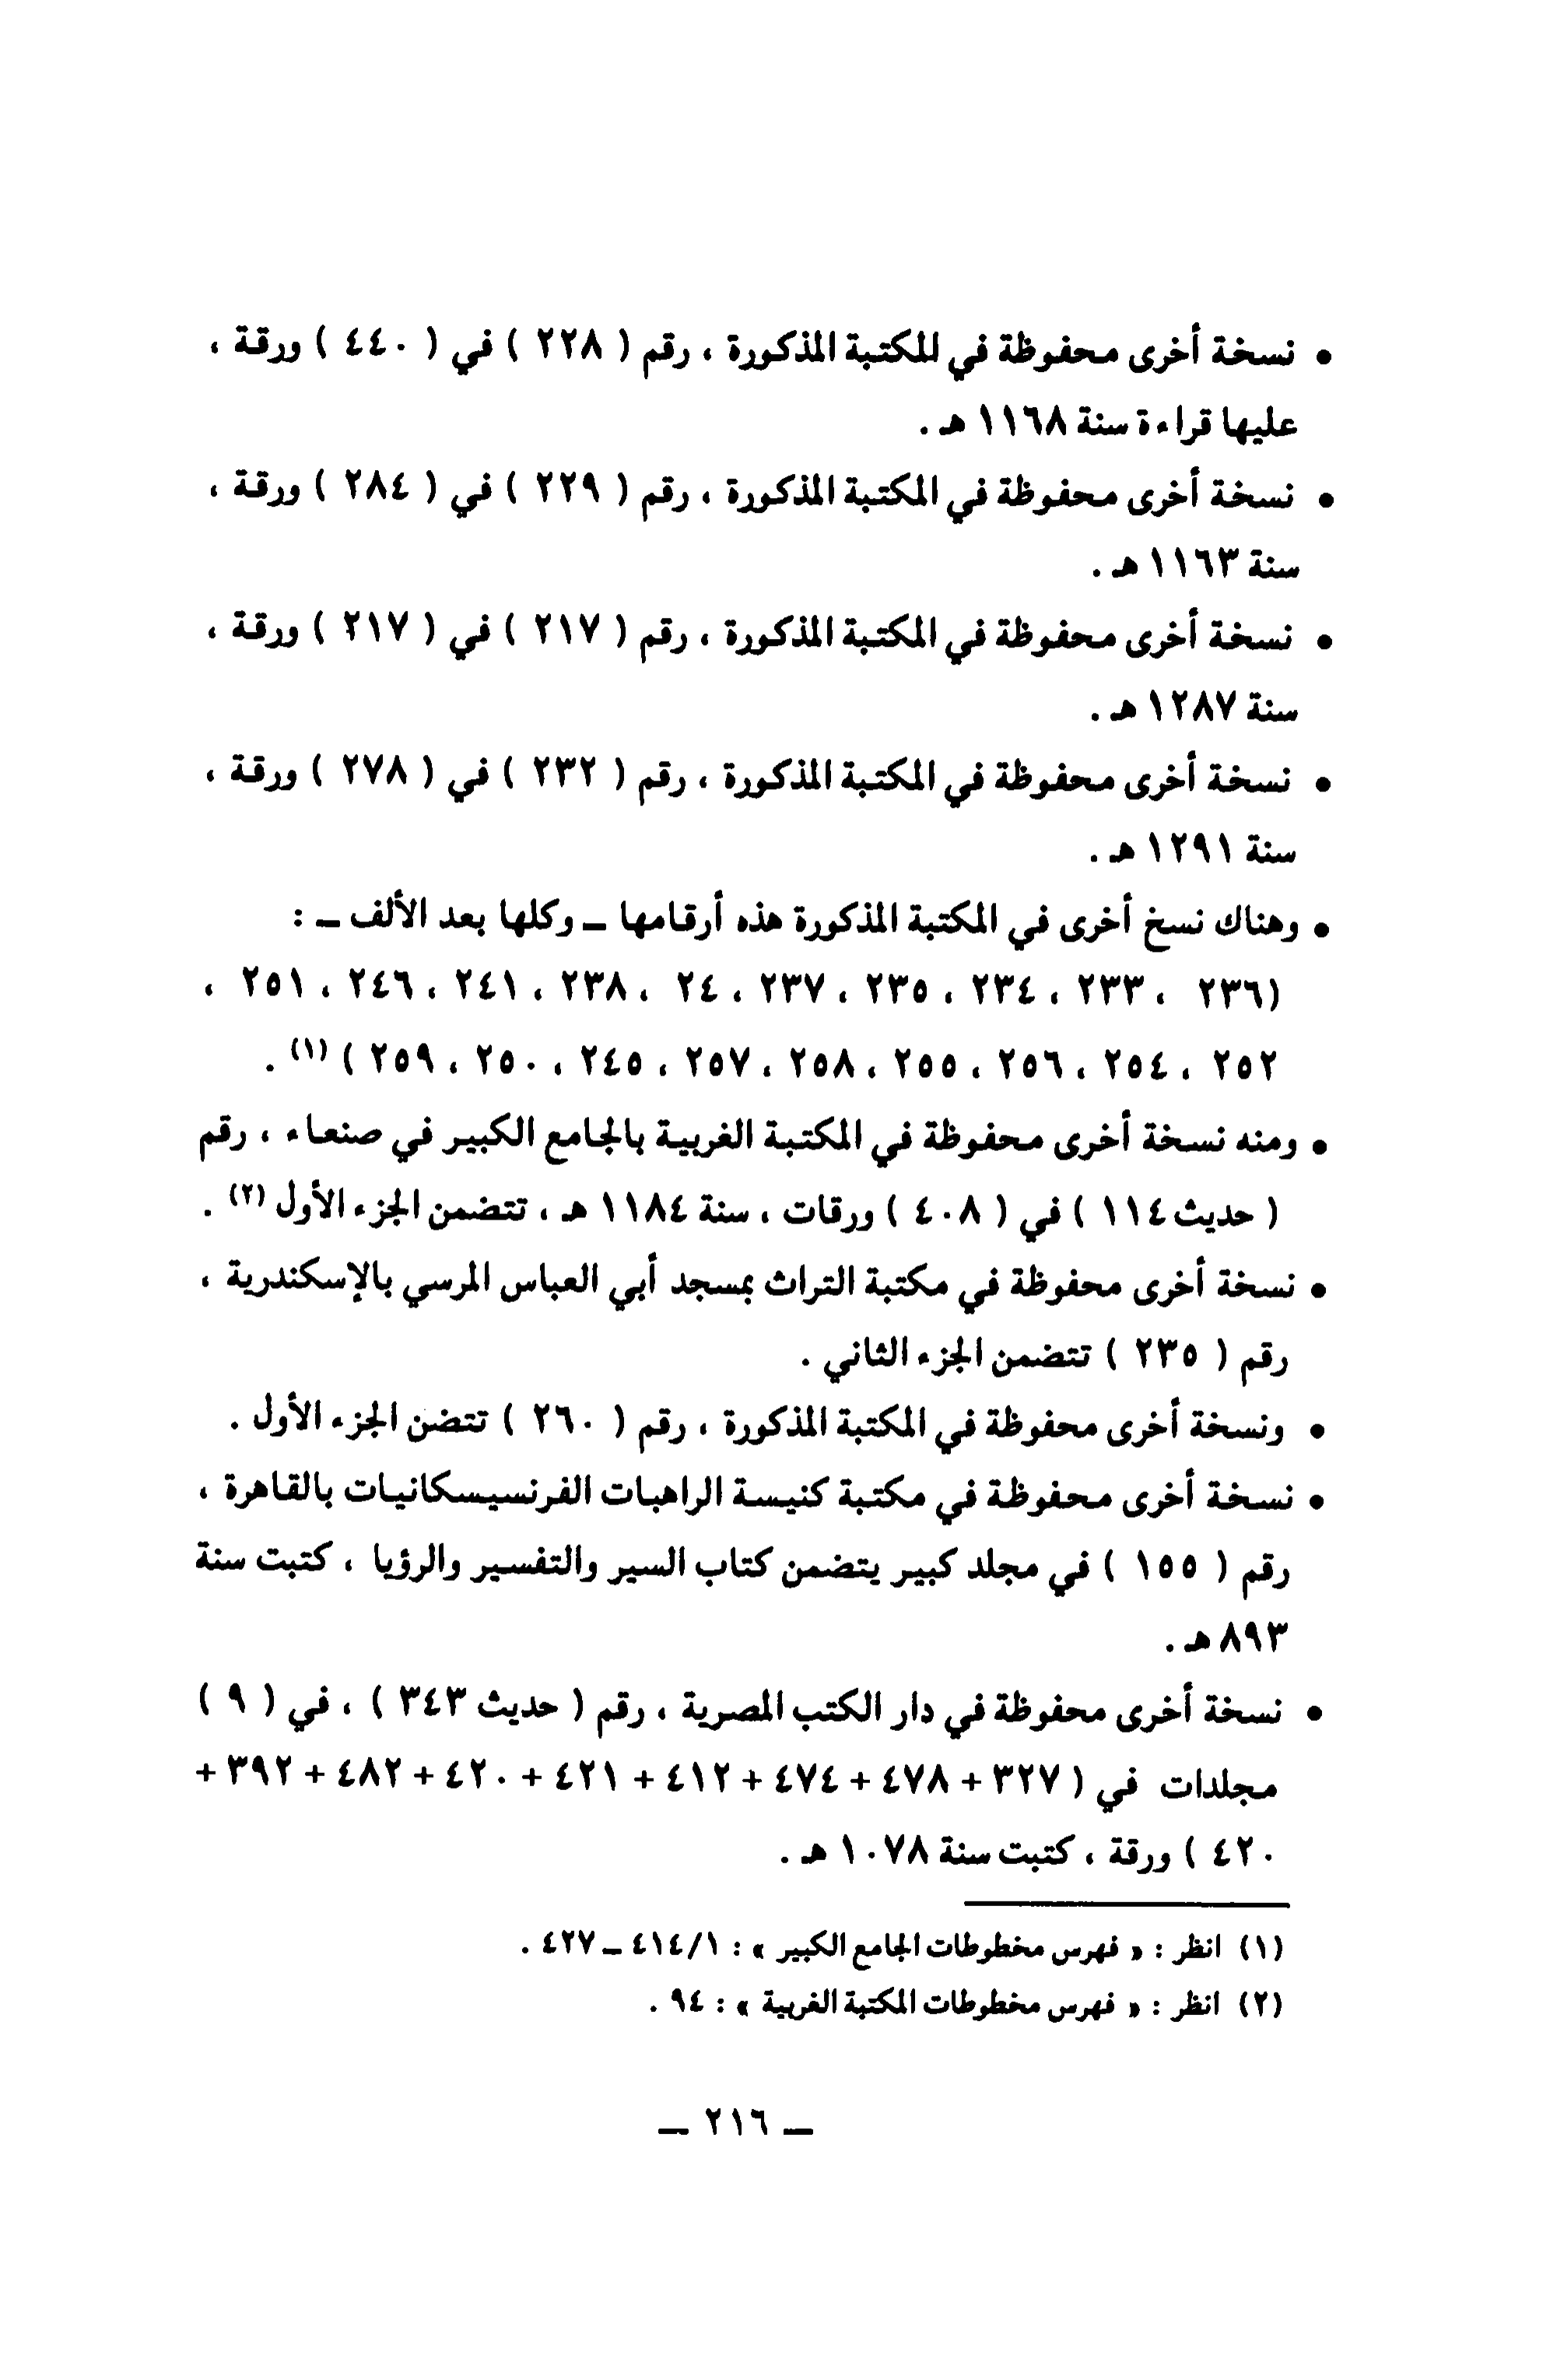 • نسخة أخرى محفوظة في للمكتبة المذكورة ، رقم ( ٢٢٨ ) في ( ٤٤٠ ) ورقة ،
عليها قراءة سنة ١١٦٨ هـ .
• نسخة أخرى محفوظة في المكتبة المذكورة ، رقم ( ٢٢٩ ) في ( ٢٨٤ ) ورقة ،
سنة ١١٦٣ هـ .
• نسخة أخرى محفوظة في المكتبة المذكورة ، رقم ( ٢١٧ ) في ( ٢١٧ ) ورقة ،
سنة ١٢٨٧ هـ .
• نسخة أخرى محفوظة في المكتبة المذكورة ، رقم ( ٢٣٢ ) في ( ٢٧٨ ) ورقة ،
سنة ١٢٩١ هـ .
• وهناك نسخ أخرى في المكتبة المذكورة هذه أرقامها ـ وكلها بعد الألف ـ :
(٢٣٦ ، ٢٣٣ ، ٢٣٤ ، ٢٣٥ ، ٢٣٧ ، ٢٤ ، ٢٣٨ ، ٢٤١ ، ٢٤٦ ، ٢٥١ ،
٢٥٢ ، ٢٥٤ ، ٢٥٦ ، ٢٥٥ ، ٢٥٨ ، ٢٥٧ ، ٢٤٥ ، ٢٥٠ ، ٢٥٩ ) (١) .
• ومنه نسخة أخرى محفوظة في المكتبة الغربية بالجامع الكبير في صنعاء ، رقم
( حديث ١١٤ ) في ( ٤٠٨ ) ورقات ، سنة ١١٨٤ هـ ، تتضمن الجزء الأول (٢) .
• نسخة أخرى محفوظة في مكتبة التراث بمسجد أبي العباس المرسي بالإسكندرية ،
رقم ( ٢٣٥ ) تتضمن الجزء الثاني .
• ونسخة أخرى محفوظة في المكتبة المذكورة ، رقم ( ٢٦٠ ) تتضن الجزء الأول .
• نسخة أخرى محفوظة في مكتبة كنيسة الراهبات الفرنسيسكانيات بالقاهرة ،
رقم ( ١٥٥ ) في مجلد كبير يتضمن كتاب السير والتفسير والرؤيا ، كتبت سنة
٨٩٣ هـ .
• نسخة أخرى محفوظة في دار الكتب المصرية ، رقم ( حديث ٣٤٣ ) ، في ( ٩ )
مجلدات في ( ٣٢٧ + ٤٧٨ + ٤٧٤ + ٤١٢ + ٤٢١ + ٤٢٠ + ٤٨٢ + ٣٩٢ +
٤٢٠ ) ورقة ، كتبت سنة ١٠٧٨ هـ .
(١) انظر : « فهرس مخطوطات الجامع الكبير » : ٤١٤/١ ـ ٤٢٧ .
(٢) انظر : « فهرس مخطوطات المكتبة الغربية » : ٩٤ .
ـ ٢١٦ ـ